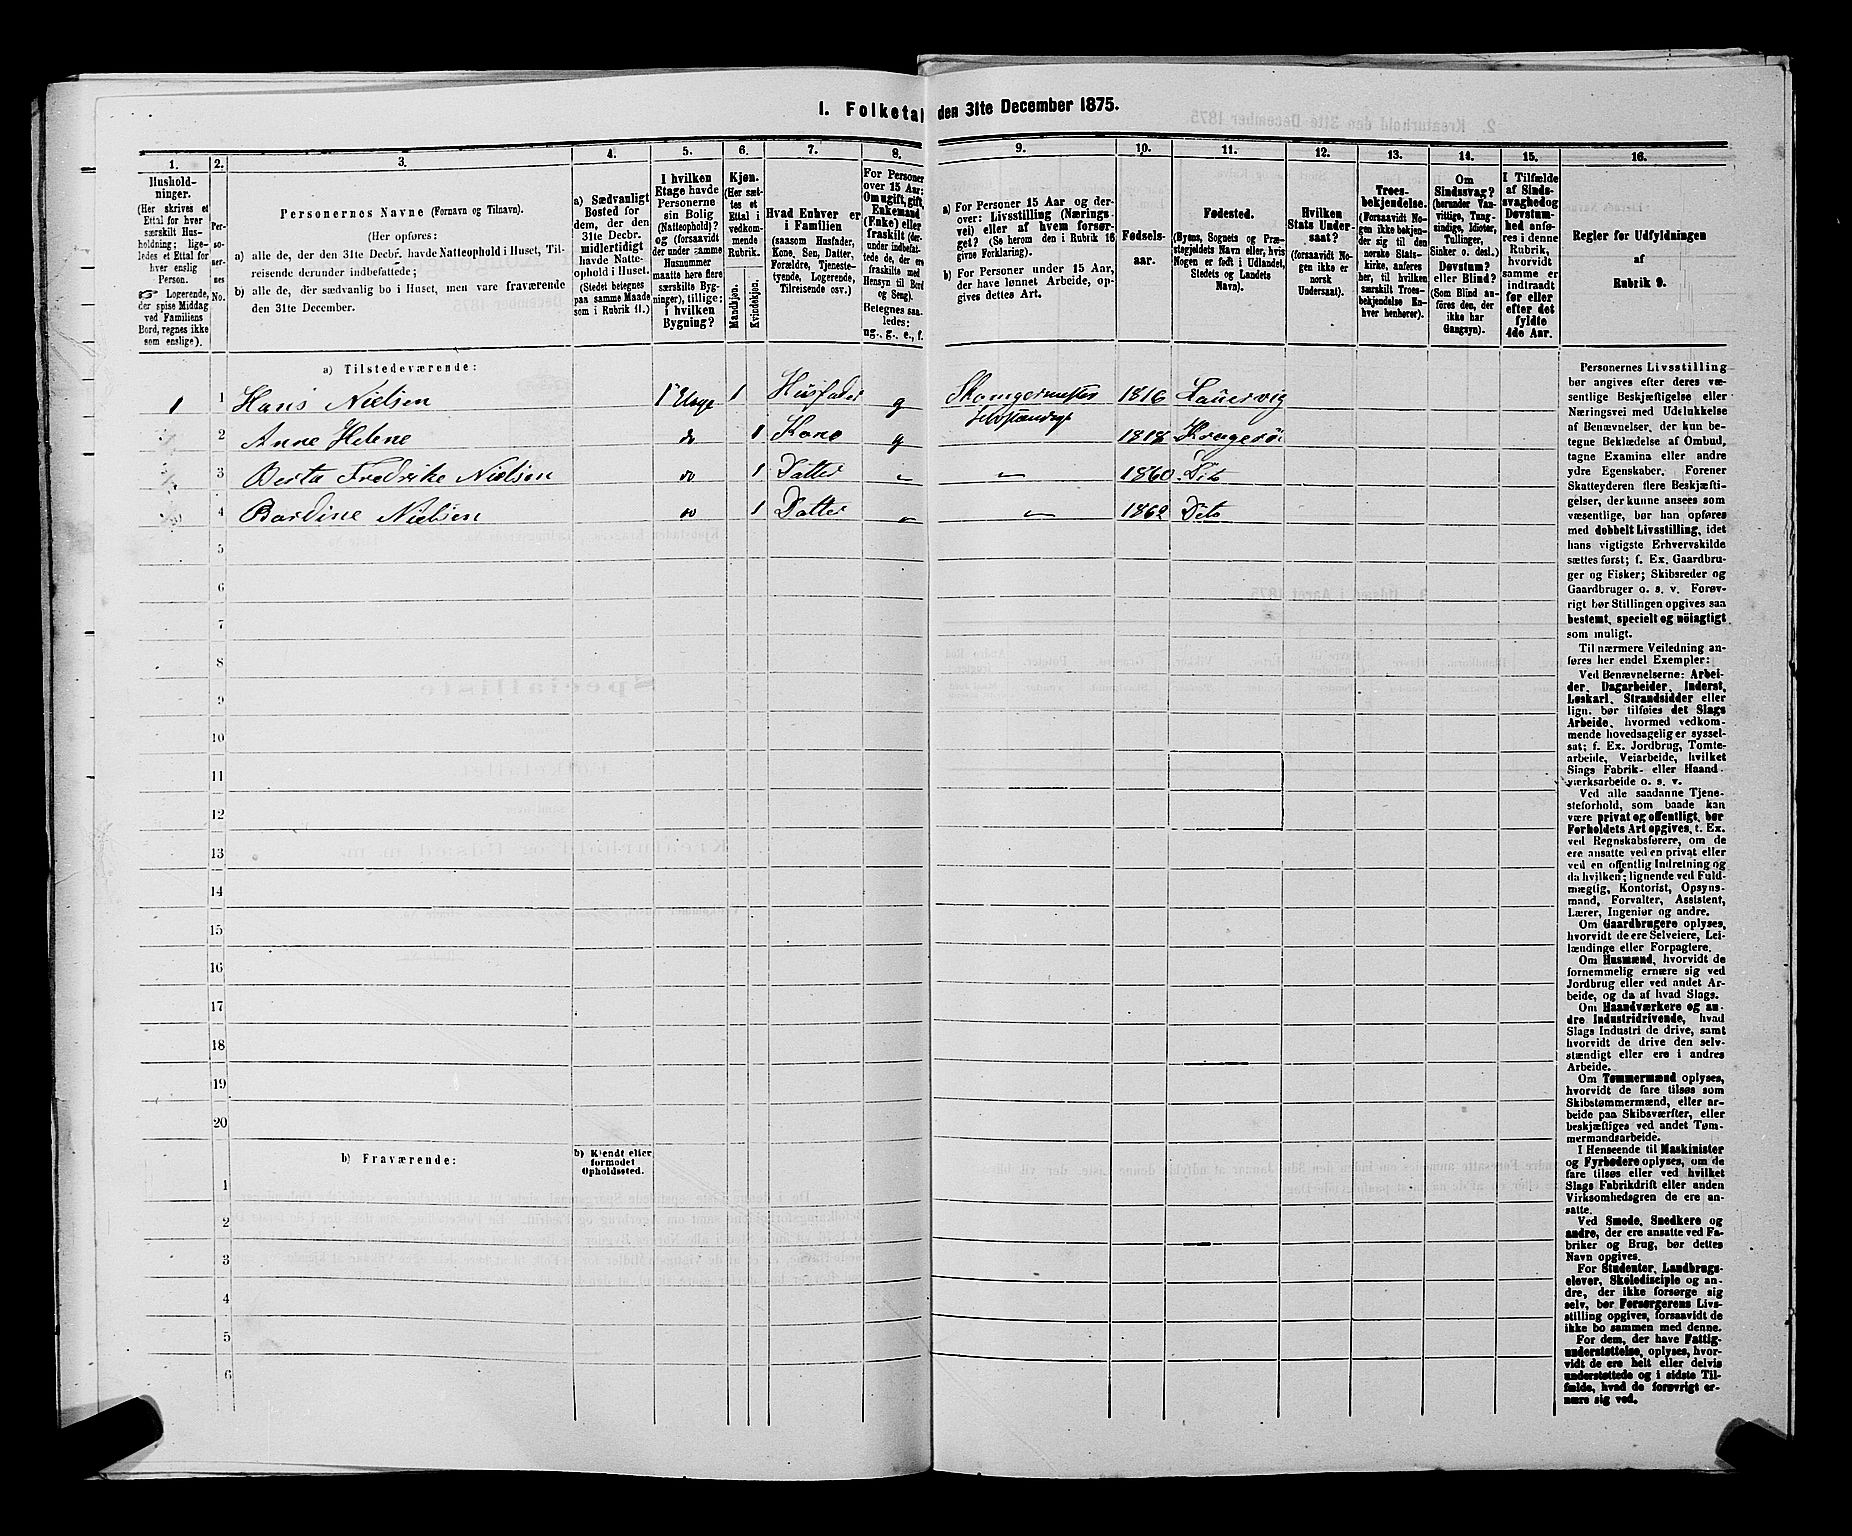 1. Folketal den 31te December 1875.
1.
2.
3.
4.
5.
6.
7.
8.
9.
10.
11.
12.
13.
14.
15.
16.
Hushold-
ninger.
(Her skrives et
Ettal for hver
særskilt Hus-
holdning; lige-
ledes et Ettal for
hver enslig
Person.
☞ Logerende,
der spise Middag
ved Familiens
Bord, regnes ikke
som enslige).
Per-
so-
ner-
nes
No.
Personernes Navne (Fornavn og Tilnavn).
(Her opføres:
a) alle de, der den 31te Decbr. havde Natteophold i Huset, Til-
reisende derunder indbefattede;
b) alle de, der sædvanlig bo i Huset, men vare fraværende
den 31te December.
a) Sædvanligt
Bosted for
dem, der den
31te Decbr.
midlertidigt
havde Natte-
ophold i Huset.
(Stedet betegnes
paa samme Maade
som i Rubrik 11.)
I hvilken
Etage havde
Personerne
sin Bolig
(Natteophold)?
og (forsaavidt
der under samme
Husnummer
maatte høre flere
særskilte Byg-
ninger), tillige:
i hvilken
Bygning?
Kjøn.
(Her sæt-
tes et
Ettal i
vedkom-
mende
Rubrik.
Mandkjøn.
Kvindekjøn.
Hvad Enhver er
i Familien
(saasom Husfader,
Kone, Søn, Datter,
Forældre, Tjeneste-
tyende, Logerende,
Tilreisende osv.)
For Personer
over 15 Aar:
Om ugift, gift,
Enkemand
(Enke) eller
fraskilt (der-
under indbefat-
tede de, der ere
fraskilte med
Hensyn til Bord
og Seng).
Betegnes saa-
ledes:
ug., g., e., f.
a) For Personer 15 Aar og der-
over: Livsstilling (Nærings-
vei) eller af hvem forsør-
get? (Se herom den i Rubrik 16
givne Forklaring).
b) For Personer under 15 Aar,
der have lønnet Arbeide, op-
gives dettes Art.
Fødsels-
aar.
Fødested.
(Byens, Sognets og Præ-
stegjeldets Navn eller, hvis
Nogen er født i Udlandet,
Stedets og Landets
Navn).
Hvilken
Stats Under-
saat?
(forsaavidt No-
gen ikke er
norsk
Undersaat).
Troes-
bekjendelse.
(Forsaavidt No-
gen ikke bekjen-
der sig til den
norske Stats-
kirke, anføres
her, til hvilken
særskilt Troes-
bekjendelse En-
hver henhører).
Om
Sindssvag?
(herunder Van-
vittige, Tung-
sindige, Idioter,
Tullinger,
Sinker o. desl.)
Døvstum?
eller Blind?
(Som Blind an-
føres den, der
ikke har
Gangsyn).
I Tilfælde
af Sinds-
svaghed og
Døvstum-
hed anfø-
res i denne
Rubrik,
hvorvidt
samme er
indtraadt
før eller
efter det
fyldte
4de Aar.
Regler for Udfyldningen
af
Rubrik 9.
a) Tilstedeværende:
1 1 Hans Nielsen 1 Etage 1 Husfader g 1816 Laurvig
2 Anne Helene do 1 Kone g 1818 Kragerö
3 Berta Fredrike Nielsen do 1 Datter „ „ 1860 Dito
4 Bardine Nielsen do 1 Datter „ „ 1862 Dito
5
6
7
8
9
10
11
12
13
14
15
16
17
18
19
20
b) Fraværende:
b) Kjendt eller
formodet
Opholdssted.
1
2
3
4
5
6
Personernes Livsstilling
bør angives efter deres væ-
sentlige Beskjæftigelse eller
Næringsvei med Udelukkelse
af Benævnelser, der kun be-
tegne Beklædelse af Ombud,
tagne Examina eller andre
ydre Egenskaber. Forener
Skatteyderen flere Beskjæfti-
gelser, der kunne ansees som
væsentlige, bør han opføres
med dobbelt Livsstilling, idet
hans vigtigste Erhvervskilde
sættes først; f. Ex. Gaardbru-
ger og Fisker; Skibsreder og
Gaardbruger o. s. v. Forøv-
rigt bør Stillingen opgives saa
bestemt, specielt og nöiagtigt
som muligt.
Til nærmere Veiledning an-
føres her endel Exempler:
Ved Benævnelserne: Arbei-
der, Dagarbeider, Inderst,
Løskarl, Strandsidder eller
lign. bør tilføies det Slags
Arbeide, hvormed vedkom-
mende hovedsagelig er syssel-
sat; f. Ex. Jordbrug, Tomte-
arbeide, Veiarbeide, hvilket
Slags Fabrik- eller Haand-
værksarbeide o. s. v.
Ved alle saadanne Tjene-
steforhold, som baade kan
være privat og offentligt, bør
Forholdets Art opgives, t. Ex.
ved Regnskabsførere, om de
ere ansatte ved en privat eller
ved en offentlig Indretning og
da hvilken; lignende ved Fuld-
mægtig, Kontorist, Opsyns-
mand, Forvalter, Assistent,
Lærer, Ingeniør og andre.
Om Gaardbrugere oplyses,
hvorvidt de ere Selveiere, Lei-
lændinge eller Forpagtere.
Om Husmænd, hvorvidt de
fornemmelig ernære sig ved
Jordbrug eller ved andet Ar-
beide, og da af hvad Slags.
Om Haandværkere og an-
dre Industridrivende, hvad
Slags Industri de drive, samt
hvorvidt de drive den selv-
stændigt eller ere i andres
Arbeide.
Om Tømmermænd oplyses,
hvorvidt de fare tilsøs som
Skibstømmermænd, eller ar-
beide paa Skibsværfter, eller
beskjæftiges ved andet Tøm-
mermandsarbeide.
I Henseende til Maskinister
og Fyrbødere oplyses, om de
fare tilsøs eller ved hvilket
Slags Fabrikdrift eller anden
Virksomhedsgren de ere an-
satte.
Ved Smede, Snedkere og
andre, der ere ansatte ved Fa-
briker og Brug, bør dettes
Navn opgives.
For Studenter, Landbrugs-
elever, Skoledisciple og an-
dre, der ikke forsørge sig
selv, bør Forsørgerens Livs-
stilling opgives, forsaavidt de
ikke bo sammen med denne.
For dem, der have Fattig-
understøttelse, oplyses, hvor-
vidt de ere helt eller delvis
understøttede og i sidste Til-
fælde, hvad de forøvrigt er-
nære sig ved.